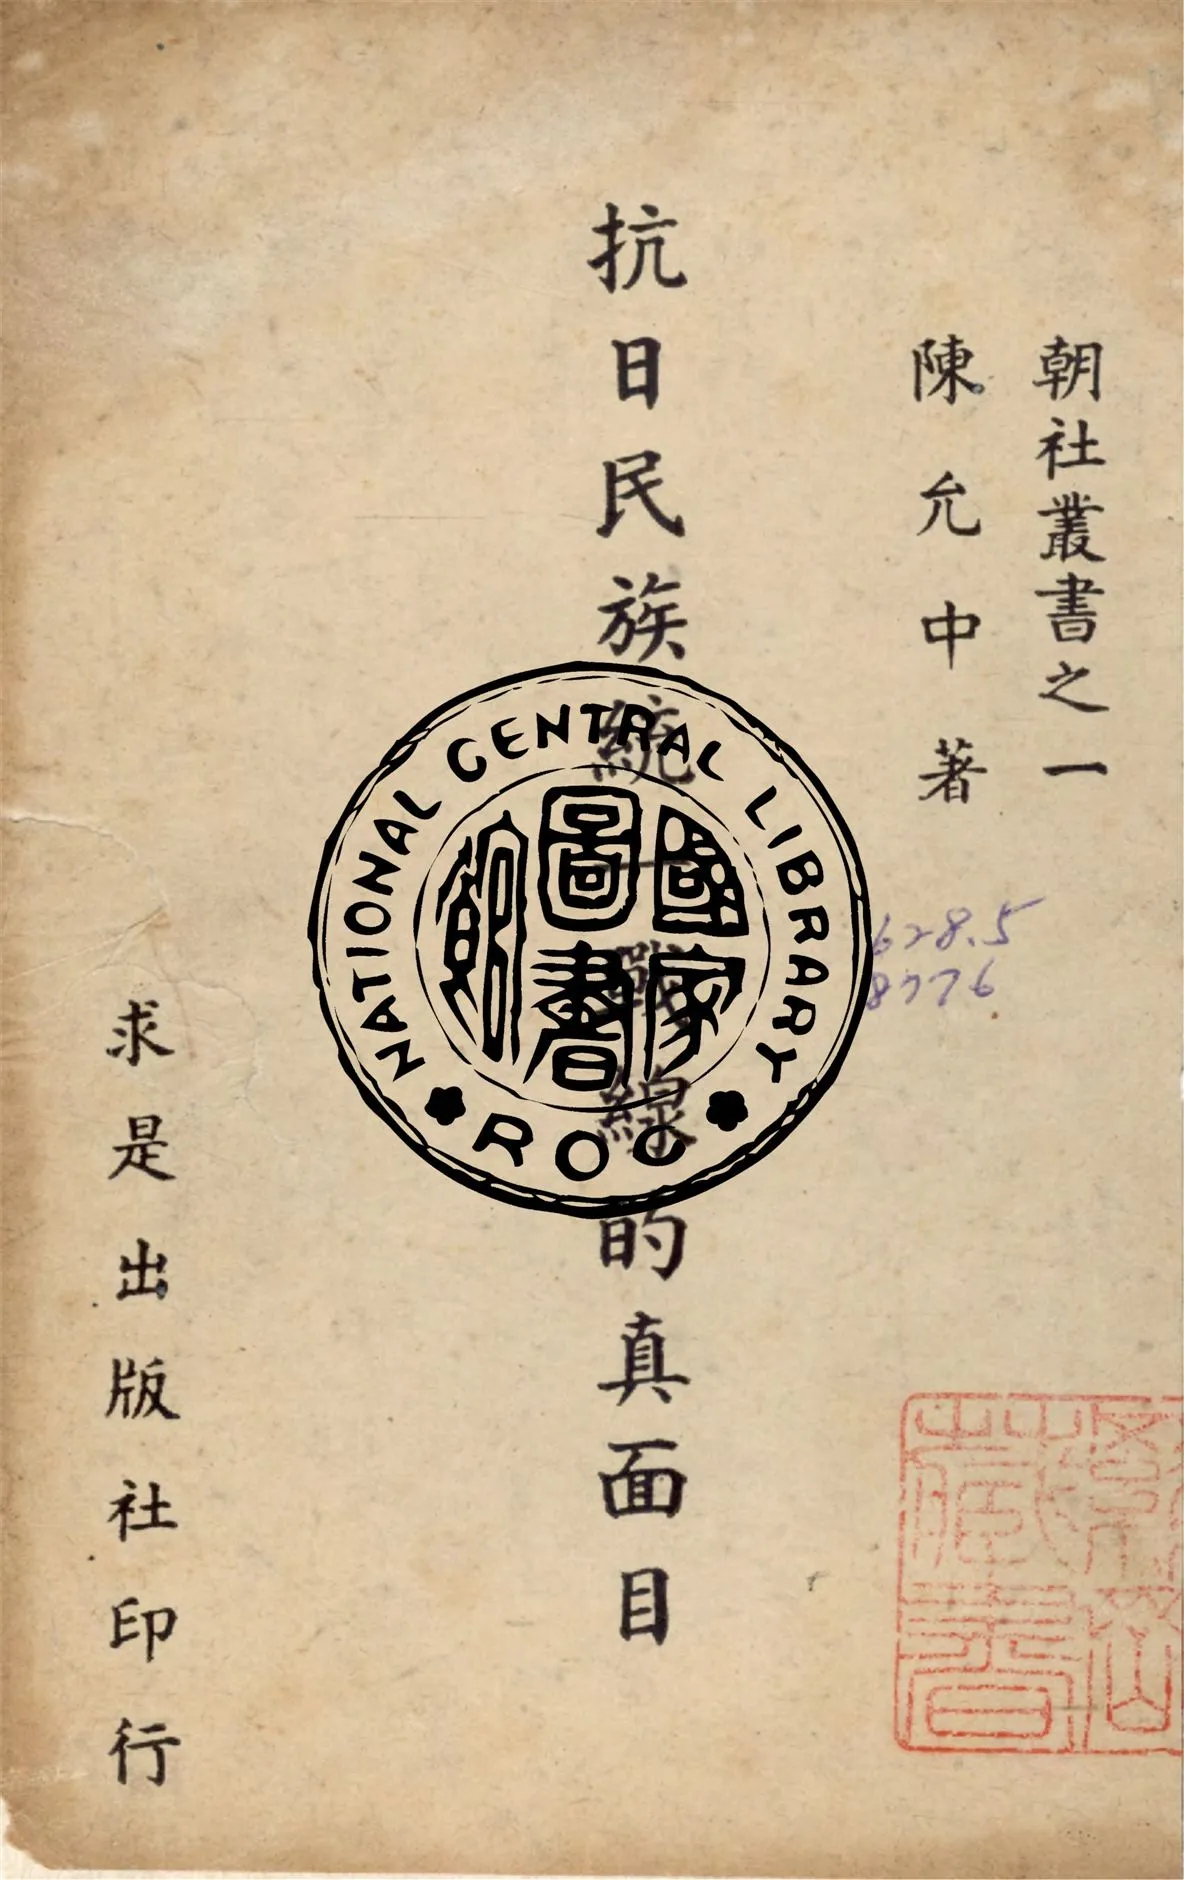 朝社叢書之一
陳允中著
抗日民族統一戰線的真面目
求是出版社印行
NATIONAL CENTRAL LIBRARY
ROC
國家
圖書
館
628.5
8776
藏書